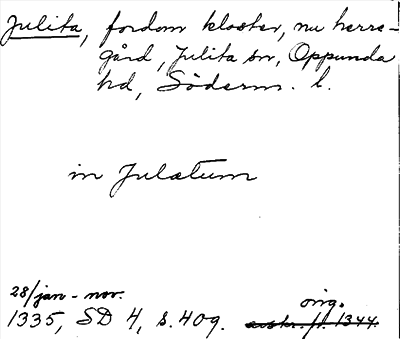 Julita, fordom kloster, nu herre-
gård, Julita sn, Oppunda
hd, Söderm. l.
in Julætum
28/jan - nov.
orig.
1335, SD 4, s. 409. avskr. fr. 1344.